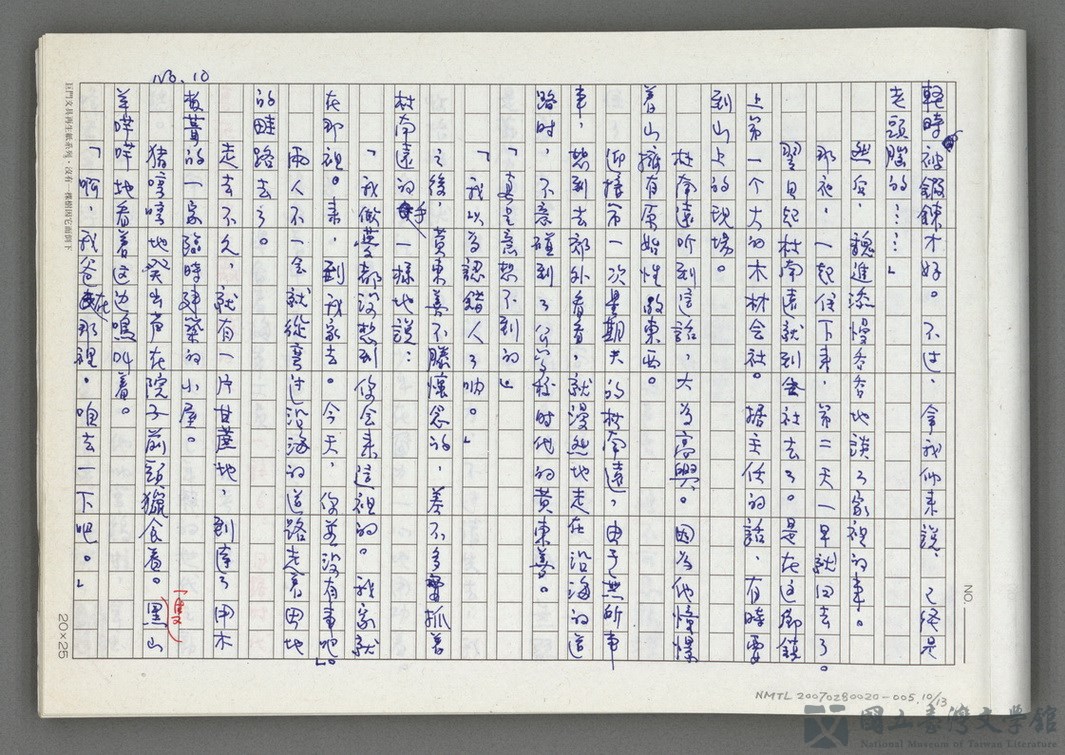 輕時被鍛鍊才好。不过，拿我们来說，已経是
老頭腦的……」
然后，魏進添慢吞吞地談了家裡的事。
那夜，一起住下来，第二天一早就回去了。
翌日起杜南遠就到会社去了。是在这鄉鎮
上第一个大的木材会社。据主任的話，有時要
到山上的現場。
杜南遠听到這話，大為高興。因為他憧憬
着山擁有原始性的東西。
迎接第一次星期天的杜南遠，由于無所事
事，想到去郊外看看，就漫然地走在沿海的道
路时，不意碰到了公学校时代的黄東善。
「真是意想不到的」
「我以為認錯人了吶。」
之後，黄東善不勝懷念的，差不多要抓着
杜南遠的手一樣地說：
「我做夢都没想到你会来這裡的。我家就
在那裡。来，到我家去。今天，你並没有事吧」。
兩人不一会就從弯过沿海的道路走着田地
的畦路去了。
走去不久，就有一片甘蔗地，到達了用木
板葺的一家臨時建築的小屋。
猪哼哼地発出声在院子前頭獵食着。黑山
羊咩咩地看着这边鳴叫着。
「啊，我爸在那裡。咱去一下吧。」
No. 10
巨門文具再生紙系列·沒有一棵樹因它而倒下
20×25
NO.
NMTL 20070280020-005.10/13
國立臺灣文學館
National Museum of Taiwan Literature